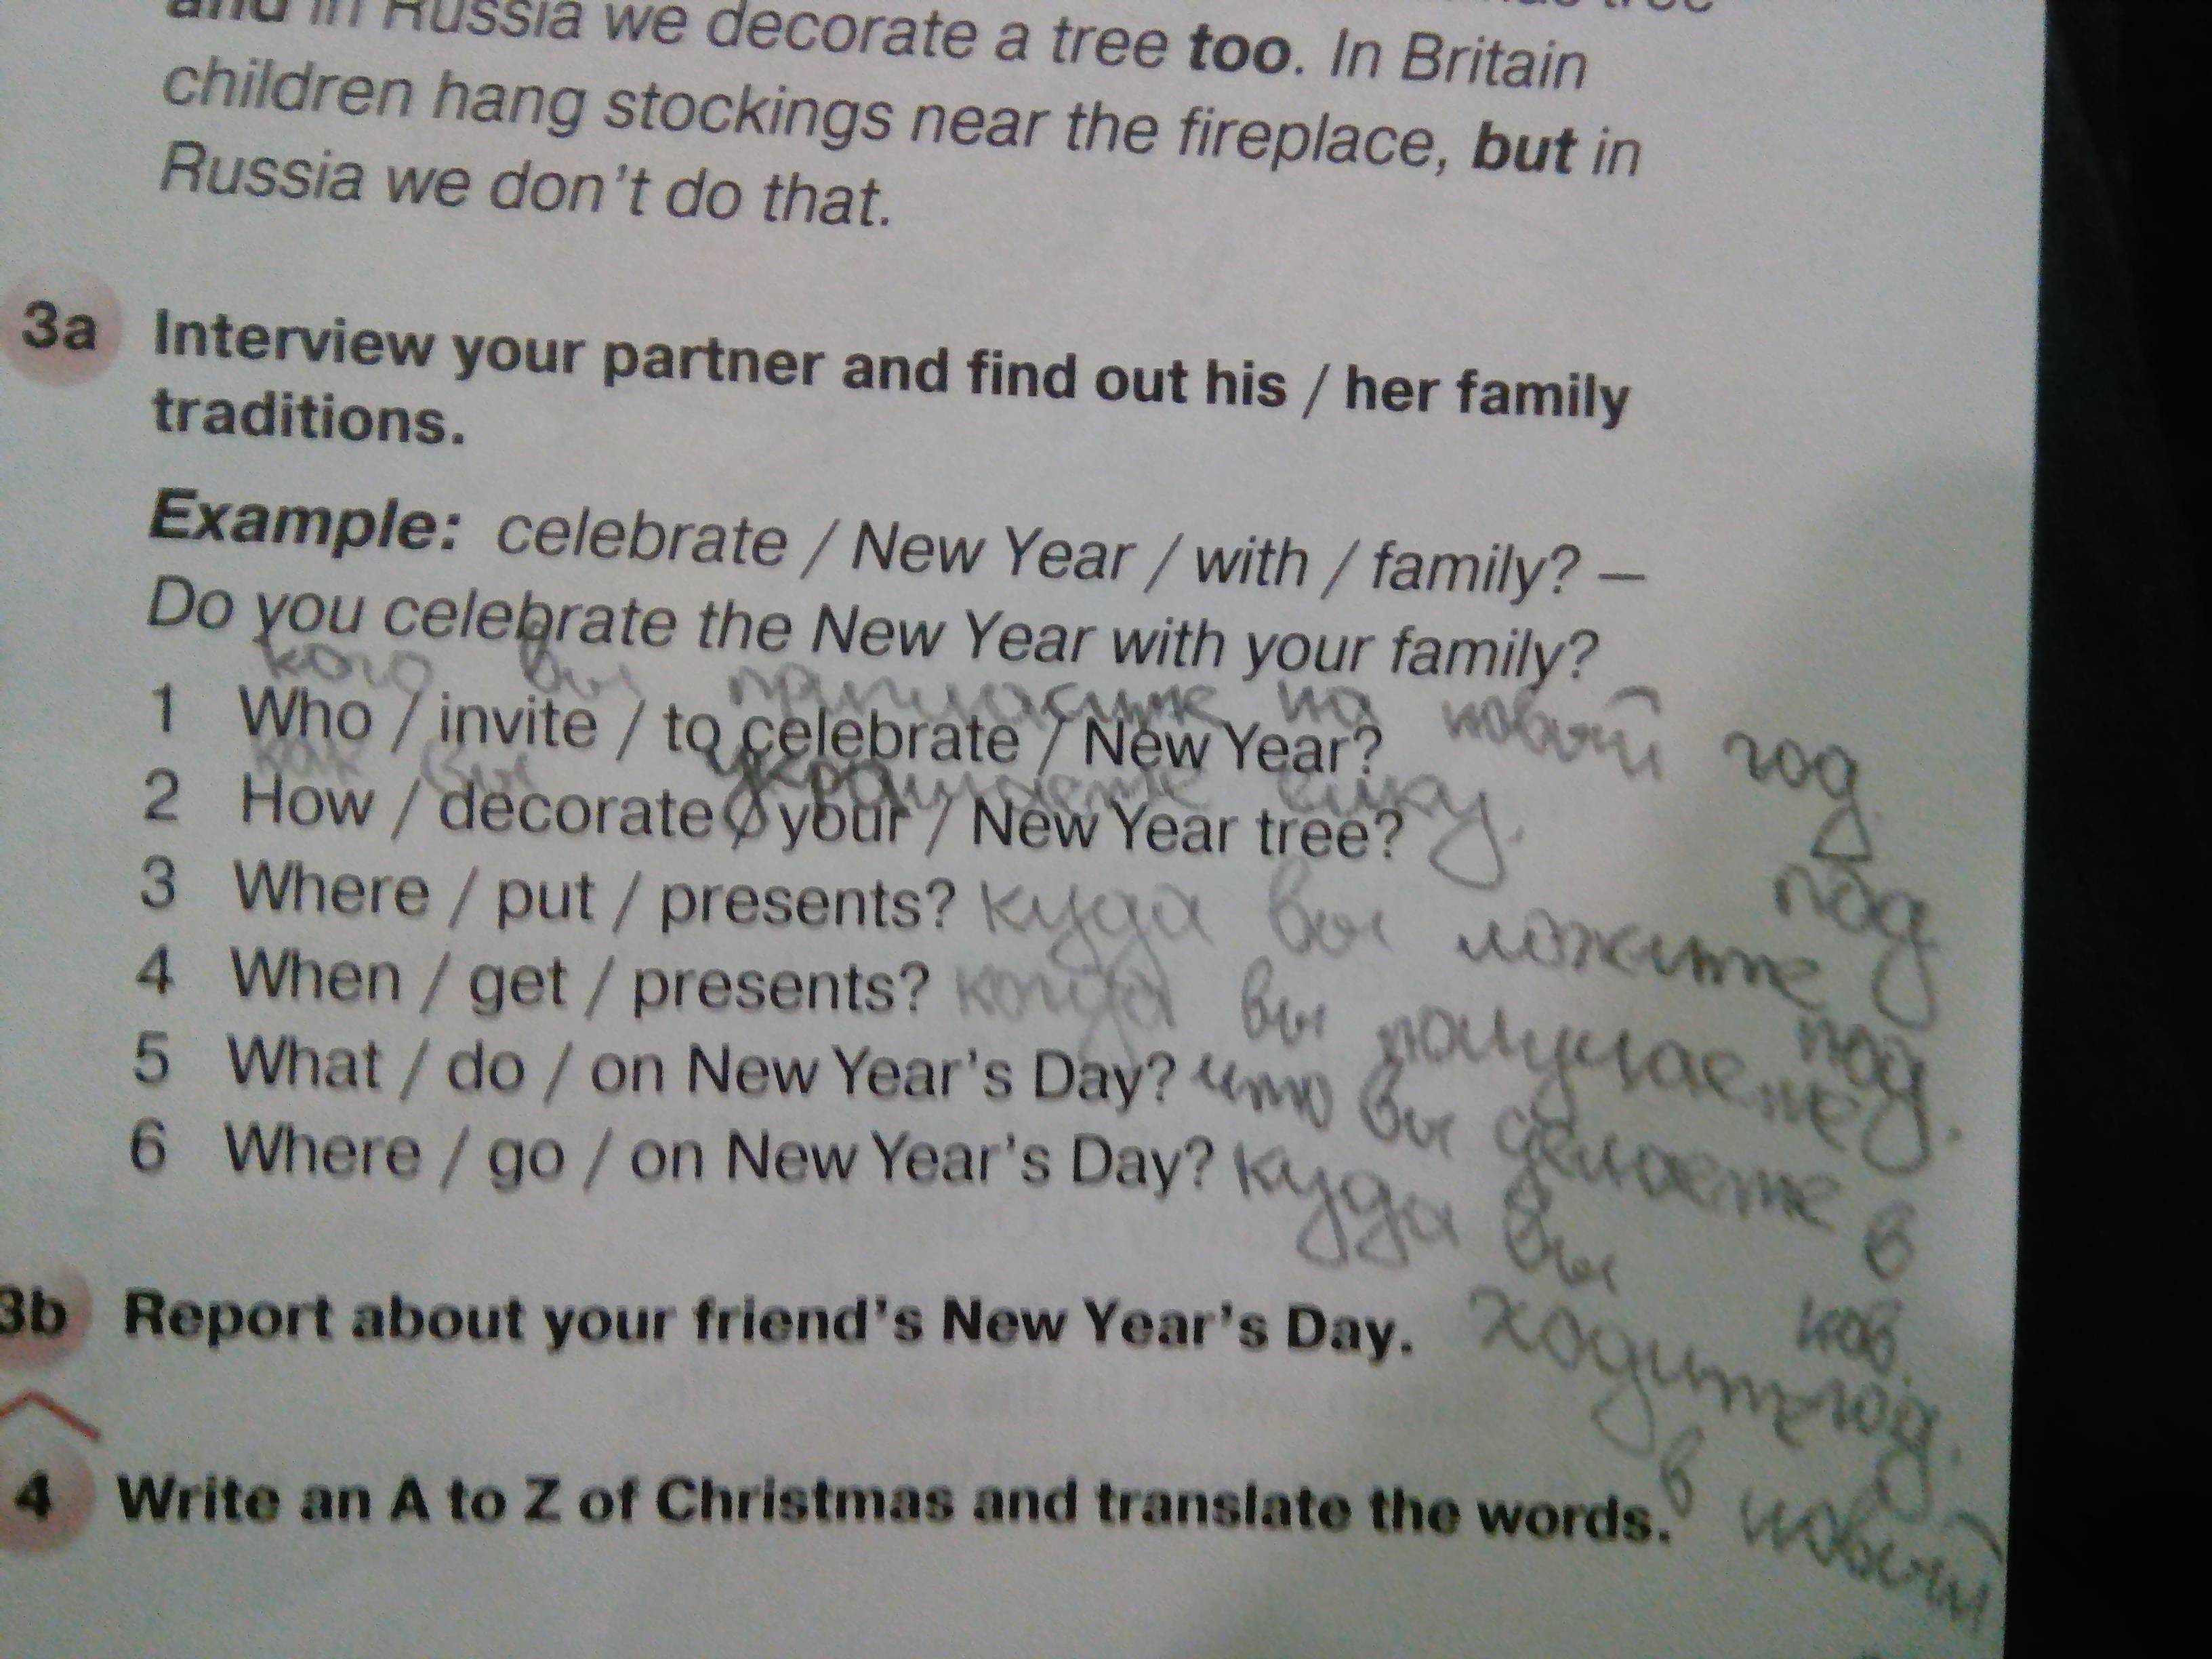 and in Russia we decorate a tree too. In Britain
children hang stockings near the fireplace, but in
Russia we don't do that.
3a Interview your partner and find out his / her family
traditions.
Example: celebrate / New Year / with / family? –
Do you celebrate the New Year with your family?
кого вы пригласите на новый год
1 Who / invite / to celebrate / New Year?
как вы украшаете ёлку.
2 How / decorate / your / New Year tree?
3 Where / put / presents? куда вы ложите под
4 When / get / presents? когда вы получаете под.
5 What / do / on New Year's Day? что вы делаете в нов. год.
6 Where / go / on New Year's Day? куда вы ходите в новый
3b Report about your friend's New Year's Day.
4 Write an A to Z of Christmas and translate the words.